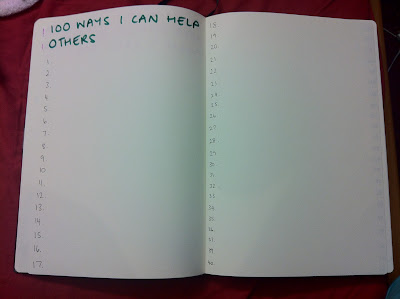 100 WAYS I CAN HELP
OTHERS
1.
2.
3.
4.
5.
6.
7.
8.
9.
10.
11.
12.
13.
14.
15.
16.
17.
18.
19.
20.
21.
22.
23.
24.
25.
26.
27.
28.
29.
30.
31.
32.
33.